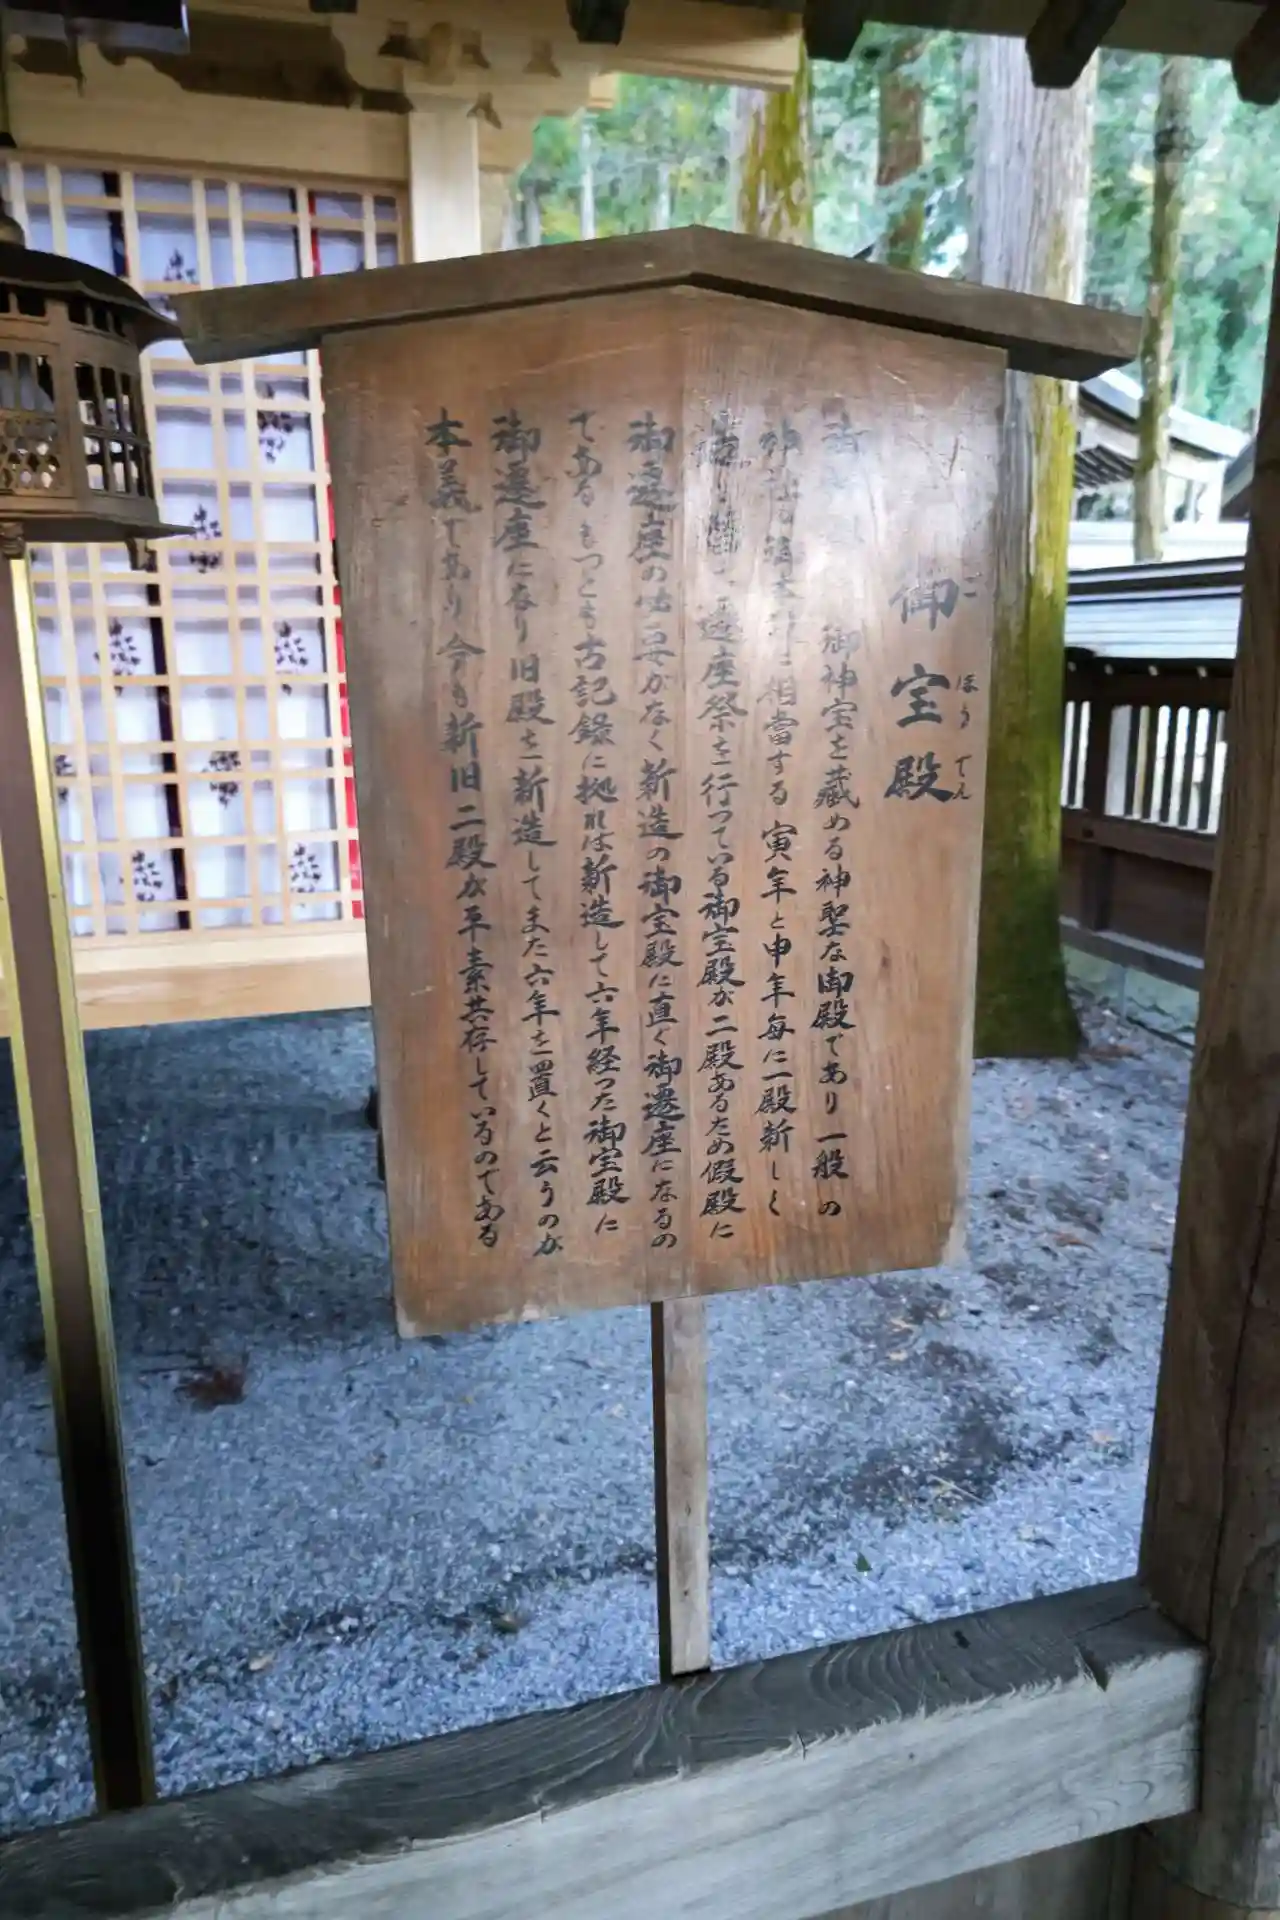 御宝殿
ごほうでん
御神宝を藏める神聖な御殿であり一般の
神社の御本殿に相當する 寅年と申年每に一殿新しく
遷座祭を行っている御宝殿が二殿あるため假殿に
御遷座の必要がなく新造の御宝殿に直ぐ御遷座になるの
である もっとも古記錄に拠れば新造して六年経った御宝殿に
御遷座になり旧殿を新造してまた六年を置くと云うのが
本義であり今も新旧二殿が平素共存しているのである